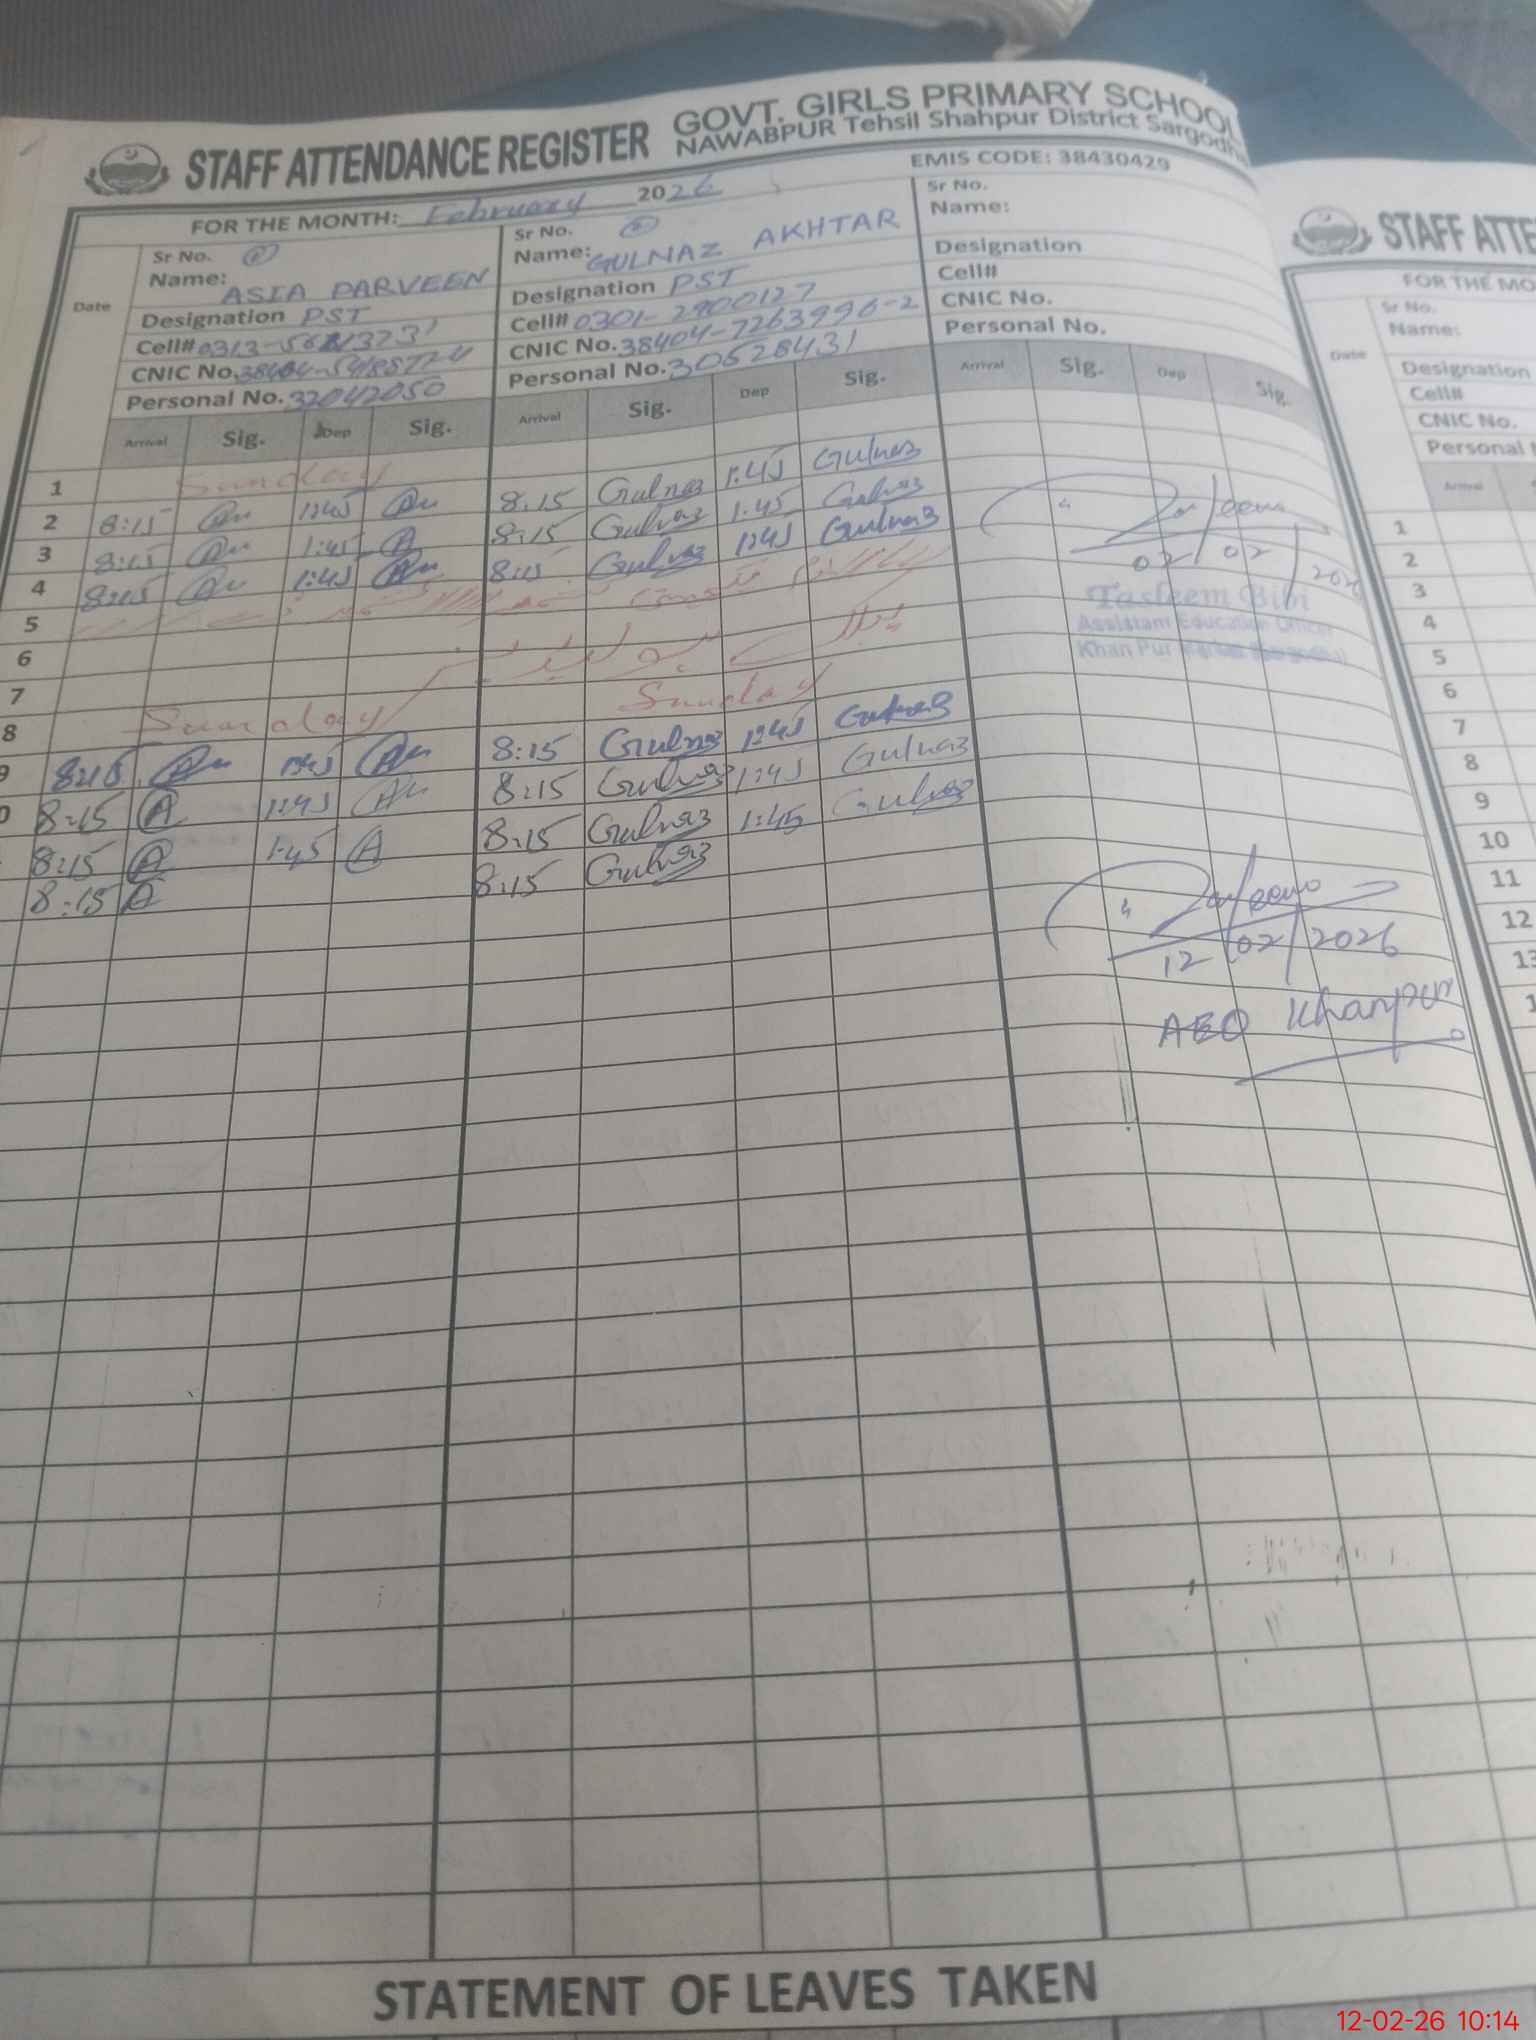 STAFF ATTENDANCE REGISTER
GOVT. GIRLS PRIMARY SCHOOL
NAWABPUR Tehsil Shahpur District Sargodha
EMIS CODE: 38430429
FOR THE MONTH: February 2026
Date
Sr No.
Name: ASIA PARVEEN
Designation PST
Cell#
CNIC No.
Personal No. 32042050
Sr No.
Name: GULNAZ AKHTAR
Designation PST
Cell# 0301-2900127
CNIC No. 38404-7263996-2
Personal No. 30628431
Sr No.
Name:
Designation
Cell#
CNIC No.
Personal No.
Arrival Sig. Dep Sig. Arrival Sig. Dep Sig. Arrival Sig. Dep Sig.
1 Sunday
2 8:15 1:45 8:15 Gulnaz 1:45 Gulnaz
3 8:15 1:45 8:15 Gulnaz 1:45 Gulnaz
4 8:15 1:45 8:15 Gulnaz 1:45 Gulnaz
5
6
7
8 Sunday Sunday
9 8:15 1:45 8:15 Gulnaz 1:45 Gulnaz
0 8:15 A 1:45 8:15 Gulnaz 1:45 Gulnaz
8:15 A 1:45 A 8:15 Gulnaz 1:45 Gulnaz
8:15 A 8:15 Gulnaz
02/02/2026
Tasleem Bibi
Assistant Education Officer
Khan Pur Markaz
12/02/2026
AEO Khanpur
STATEMENT OF LEAVES TAKEN
STAFF ATTE
FOR THE MO
Date
Sr No.
Name:
Designation
Cell#
CNIC No.
Personal
Arrival
1
2
3
4
5
6
7
8
9
10
11
12
13
1
12-02-26 10:14